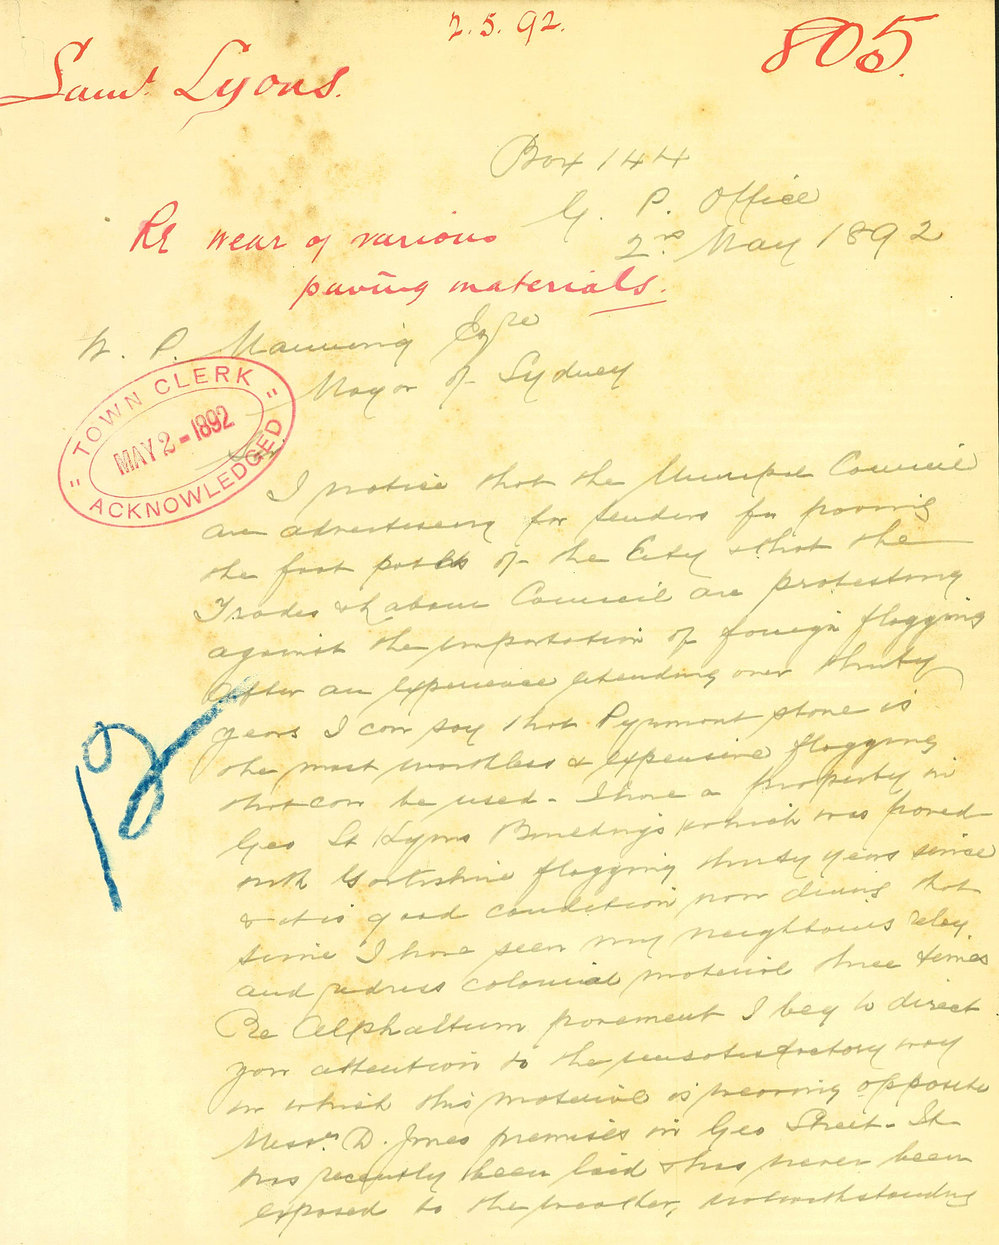 2.5.92.
805.
Saml. Lyons.
Box 144
G. P. Office
2nd May 1892
Re wear of various
paving materials.
W. P. Manning Esqre
Mayor of Sydney
"TOWN CLERK"
MAY 2-1892
ACKNOWLEDGED
Sir
I notice that the Municipal Council
are advertising for tenders for paving
the foot paths of the City & that the
Trades & Labour Council are protesting
against the importation of foreign flagging
After an experience extending over thirty
years I can say that Pyrmont stone is
the most worthless & expensive flagging
that can be used - I have a property in
Geo St Lyons Buildings which was paved
with Yorkshire flagging thirty years since
& it is good condition now during that
time I have seen my neighbours relay
and redress colonial material three times
Re Alphaltum pavement I beg to direct
your attention to the unsatisfactory way
in which this material is wearing opposite
Messrs D. Jones premises in Geo Street - It
has recently been laid & has never been
exposed to the weather, notwithstanding